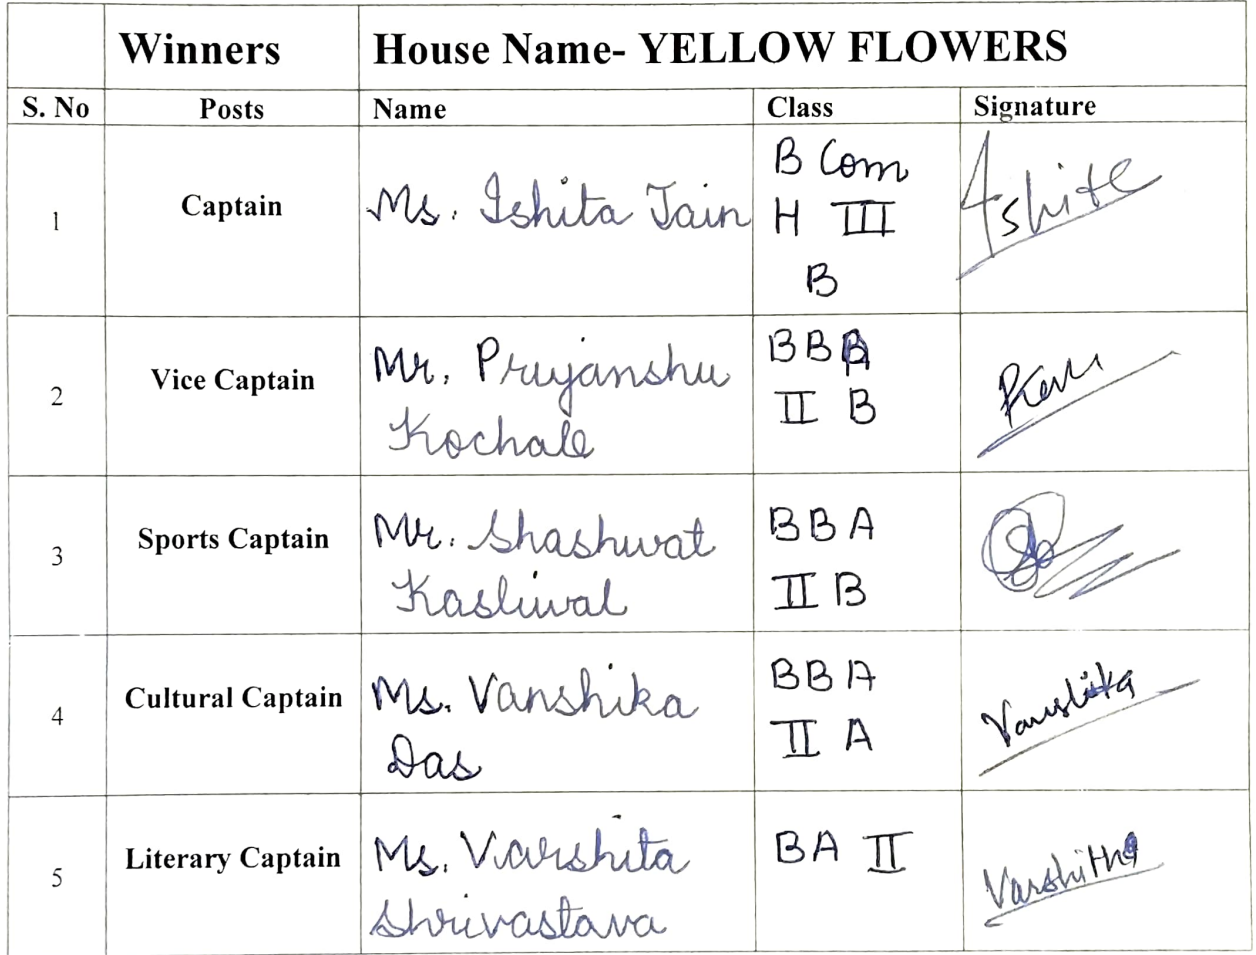 Winners House Name- YELLOW FLOWERS
S. No Posts Name Class Signature
1 Captain Ms. Ishita Jain B Com
H III
B
Ashita
2 Vice Captain Mr. Priyanshu
Kochale
BBA
II B
3 Sports Captain Mr. Shashwat
Kasliwal
BBA
II B
4 Cultural Captain Ms. Vanshika
Das
BBA
II A
Vanshika
5 Literary Captain Ms. Varshita
Shrivastava
BA II
Varshitha